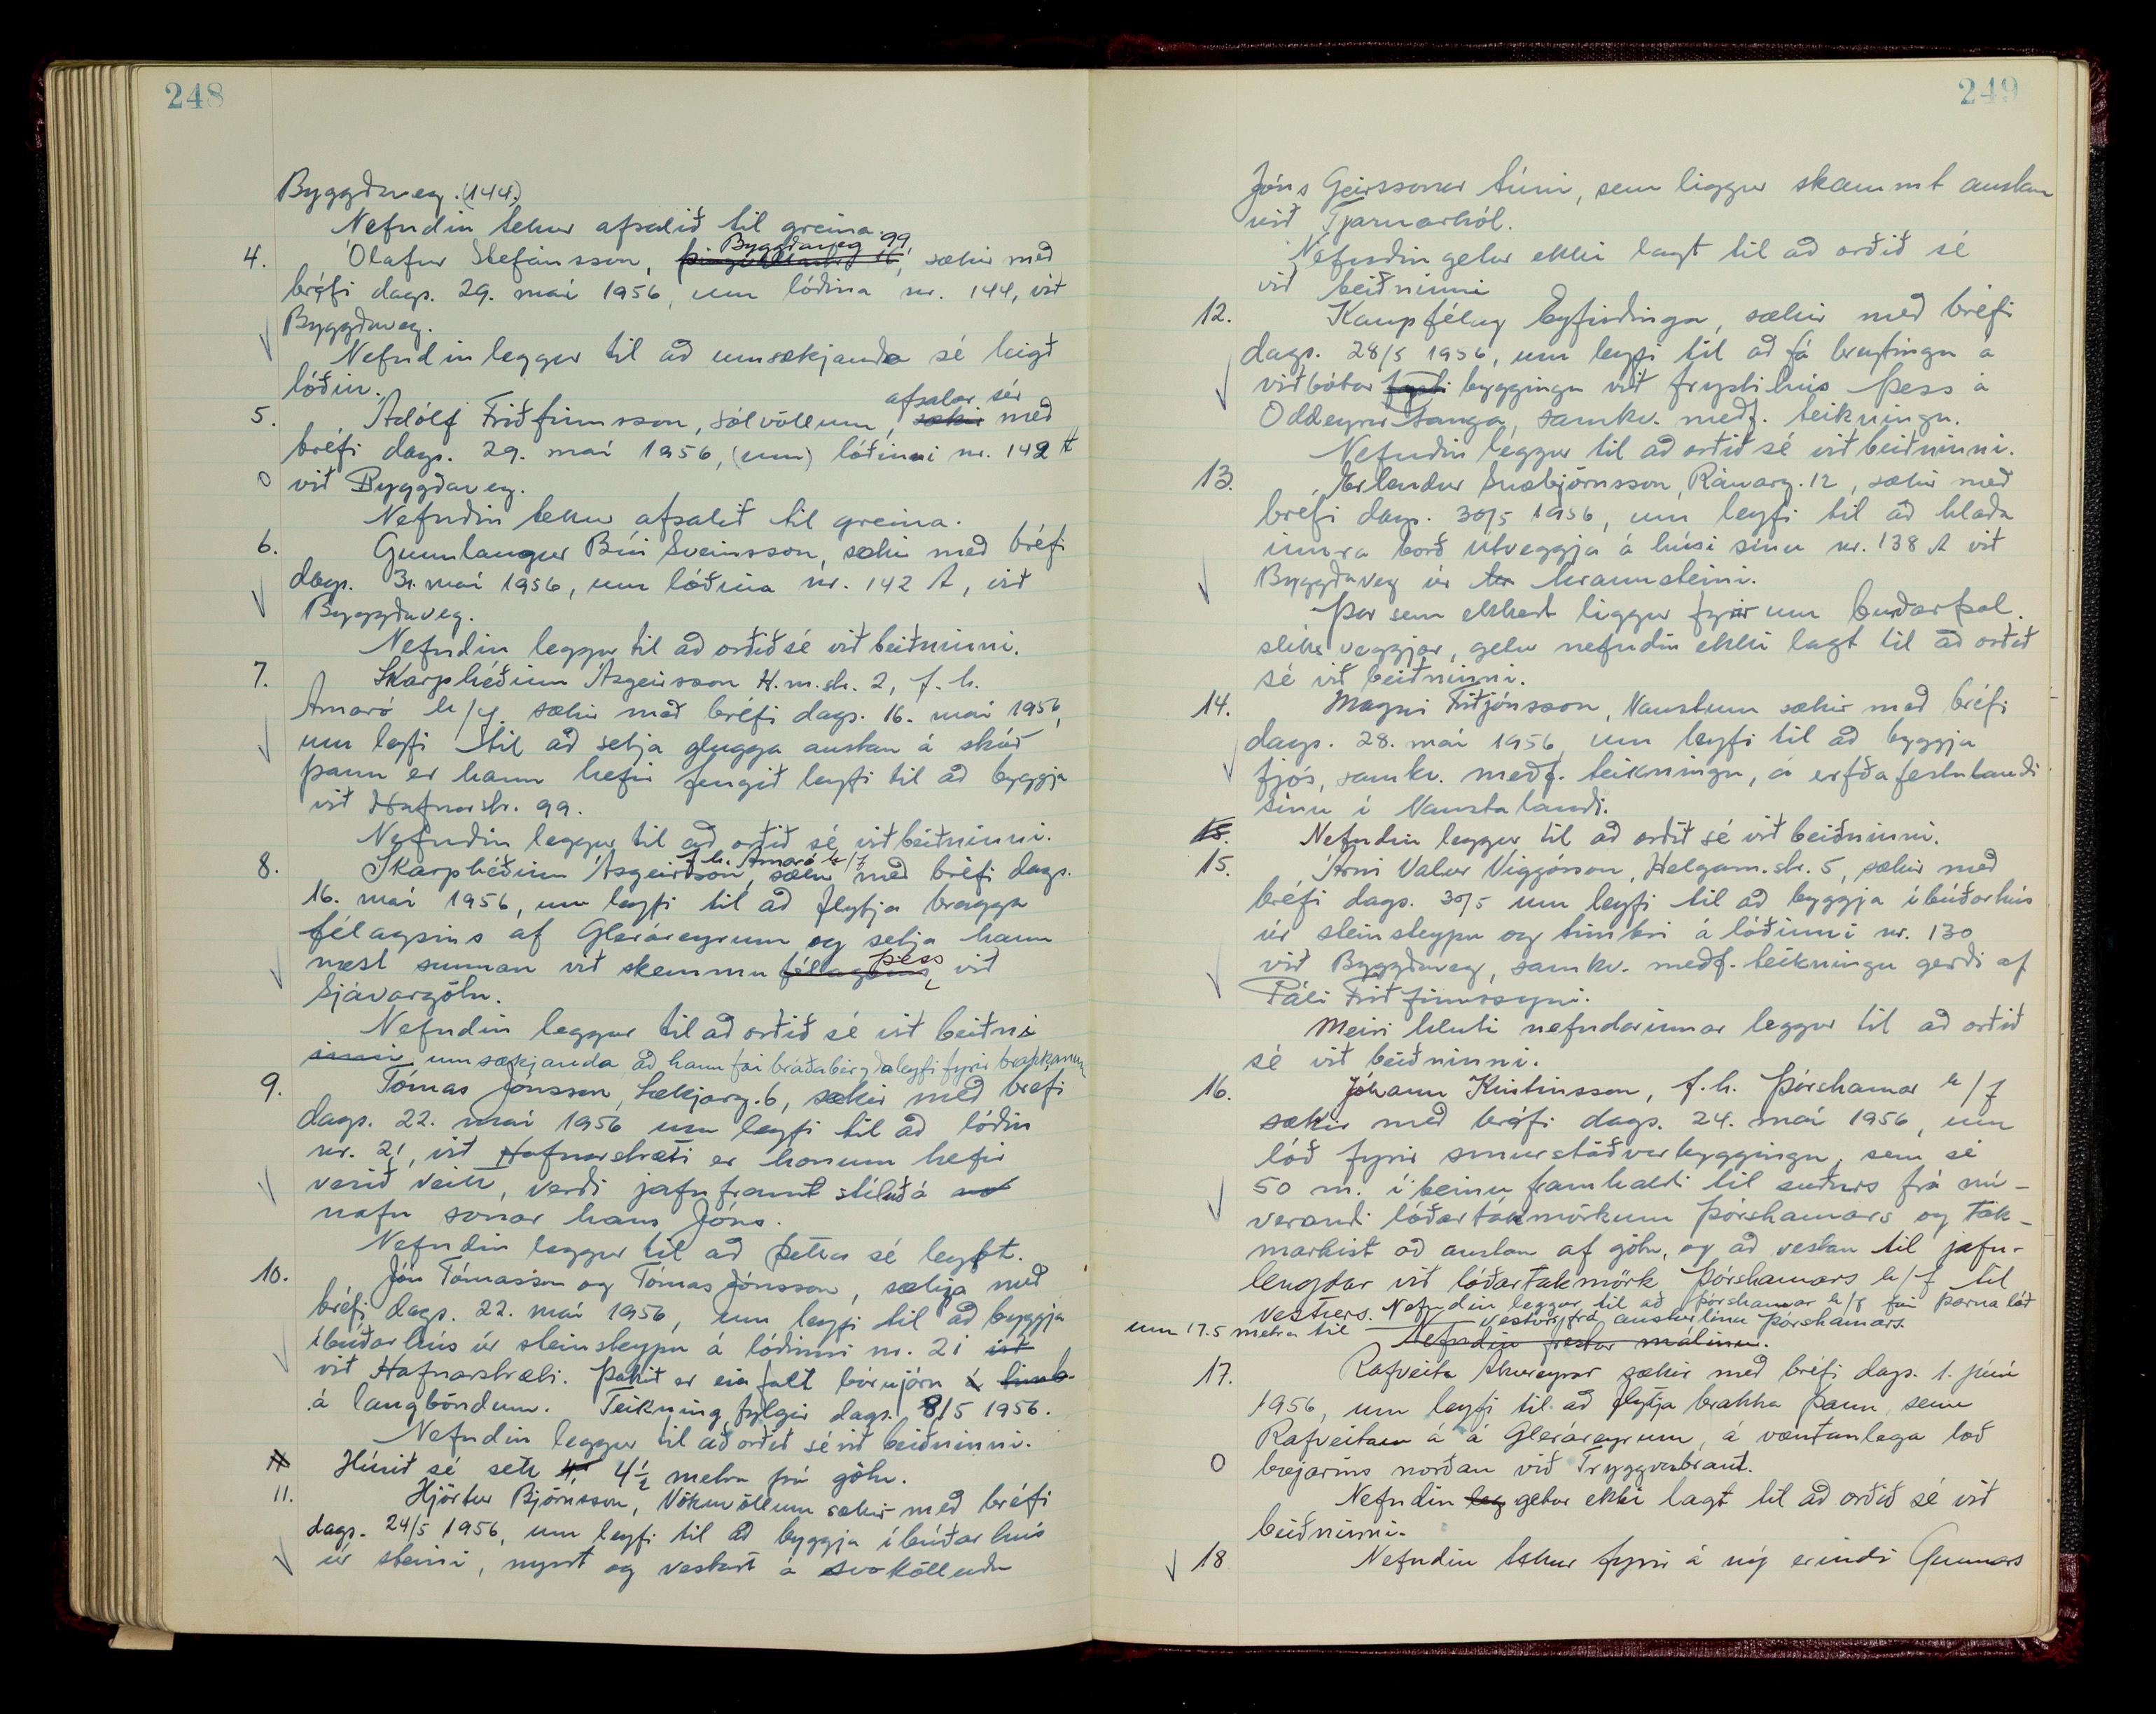 248
Byggðaveg. (144)
Nefndin tekur afsalið til greina.
Byggðaveg 99,
4. Ólafur Stefánsson, sækir með
bréfi dags. 29. maí 1956, um lóðina nr. 144, við
Byggðaveg.
Nefndin leggur til að umsækjanda sé leigð
lóðin.
afsalar sér
5. Adólf Friðfinnsson, Sólvöllum, sækir með
bréfi dags. 29. maí 1956, (um) lóðinni nr. 142 A
við Byggðaveg.
Nefndin tekur afsalið til greina.
6. Gunnlaugur Búi Sveinsson, sækir með bréfi
dags. 31. maí 1956, um lóðina nr. 142 A, við
Byggðaveg.
Nefndin leggur til að orðið sé við beiðninni.
7. Skarphéðinn Ásgeirsson H.m.str. 2, f.h.
Amaró h/f. sækir með bréfi dags. 16. maí 1956,
um leyfi til að setja glugga austan á skúr
þann er hann hefir fengið leyfi til að byggja
við Hafnarstr. 99.
Nefndin leggur til að orðið sé við beiðninni.
f.h. Amaró h/f
8. Skarphéðinn Ásgeirsson, sækir með bréfi dags.
16. maí 1956, um leyfi til að flytja bragga
félagsins af Gleráreyrum og setja hann
næst sunnan við skemmu félagsins þess, við
Sjávargötu.
Nefndin leggur til að orðið sé við beiðni
inni umsækjanda, að hann fái bráðabirgðaleyfi fyrir bragganum
9. Tómas Jónsson, Lækjarg. 6, sækir með bréfi
dags. 22. maí 1956 um leyfi til að lóðin
nr. 21, við Hafnarstræti er honum hefir
verið veitt, verði jafnframt stíluð á
nafn sonar hans Jóns.
Nefndin leggur til að þetta sé leyft.
10. Jón Tómasson og Tómas Jónsson, sækja með
bréfi dags. 22. maí 1956, um leyfi til að byggja
íbúðarhús úr steinsteypu á lóðinni nr. 21
við Hafnarstræti. Þakið er einfalt bárujárn á
á langböndum. Teikning fylgir dags. 8/5 1956.
Nefndin leggur til að orðið sé við beiðninni.
11 Húsið sé sett 4 4 1/2 metra frá götu.
11. Hjörtur Björnsson, Vökuvöllum sækir með bréfi
dags. 24/5 1956, um leyfi til að byggja íbúðarhús
úr steini, nyrst og vestast á svokölluðu
249
Jóns Geirssonar túni, sem liggur skammt austan
við Tjarnarhól.
Nefndin getur ekki lagt til að orðið sé
við beiðninni
12. Kaupfélag Eyfirðinga, sækir með bréfi
dags. 28/5 1956, um leyfi til að fá breytingu á
viðbótar frysti byggingu við frystihús þess á
Oddeyrartanga, samkv. meðf. teikningu.
Nefndin leggur til að orðið sé við beiðninni.
13. Erlendur Snæbjörnsson, Ránarg. 12, sækir með
bréfi dags. 30/5 1956, um leyfi til að hlaða
innra borð útveggja á húsi sínu nr. 138 A við
Byggðaveg úr hr hraunsteini.
Þar sem ekkert liggur fyrir um burðarþol
slíks veggjar, getur nefndin ekki lagt til að orðið
sé við beiðninni.
14. Magni Friðjónsson, Naustum sækir með bréfi
dags. 28. maí 1956, um leyfi til að byggja
fjós, samkv. meðf. teikningu, á erfðafestulandi
sínu í Naustalandi.
15. Nefndin leggur til að orðið sé við beiðninni.
15. Árni Valur Viggósson, Helgam.str. 5, sækir með
bréfi dags. 30/5 um leyfi til að byggja íbúðarhús
úr steinsteypu og timbri á lóðinni nr. 130
við Byggðaveg, samkv. meðf. teikningu gerði af
Páli Friðfinnssyni.
Meiri hluti nefndarinnar leggur til að orðið
sé við beiðninni.
16. Jóhann Kristinsson, f.h. Þórshamar h/f
sækir með bréfi dags. 24. maí 1956, um
lóð fyrir smurstöðvarbyggingu, sem sé
50 m. í beinu framhaldi til suðurs frá nú-
verandi lóðartakmörkum Þórshamars og tak-
markist að austan af götu, og að vestan til jafn-
lengdar við lóðartakmörk Þórshamars h/f til
vesturs. Nefndin leggur til að Þórshamar h/f fái þarna lóð
um 17.5 metra til vesturs frá austurlínu Þórshamars.
Nefndin frestar málinu.
17. Rafveita Akureyrar sækir með bréfi dags. 1. júní
1956, um leyfi til að flytja brakka þann, sem
Rafveitan á á Gleráreyrum, á væntanlega lóð
bæjarins norðan við Tryggvabraut.
Nefndin leg getur ekki lagt til að orðið sé við
beiðninni.
18 Nefndin tekur fyrir á ný erindi Gunnars